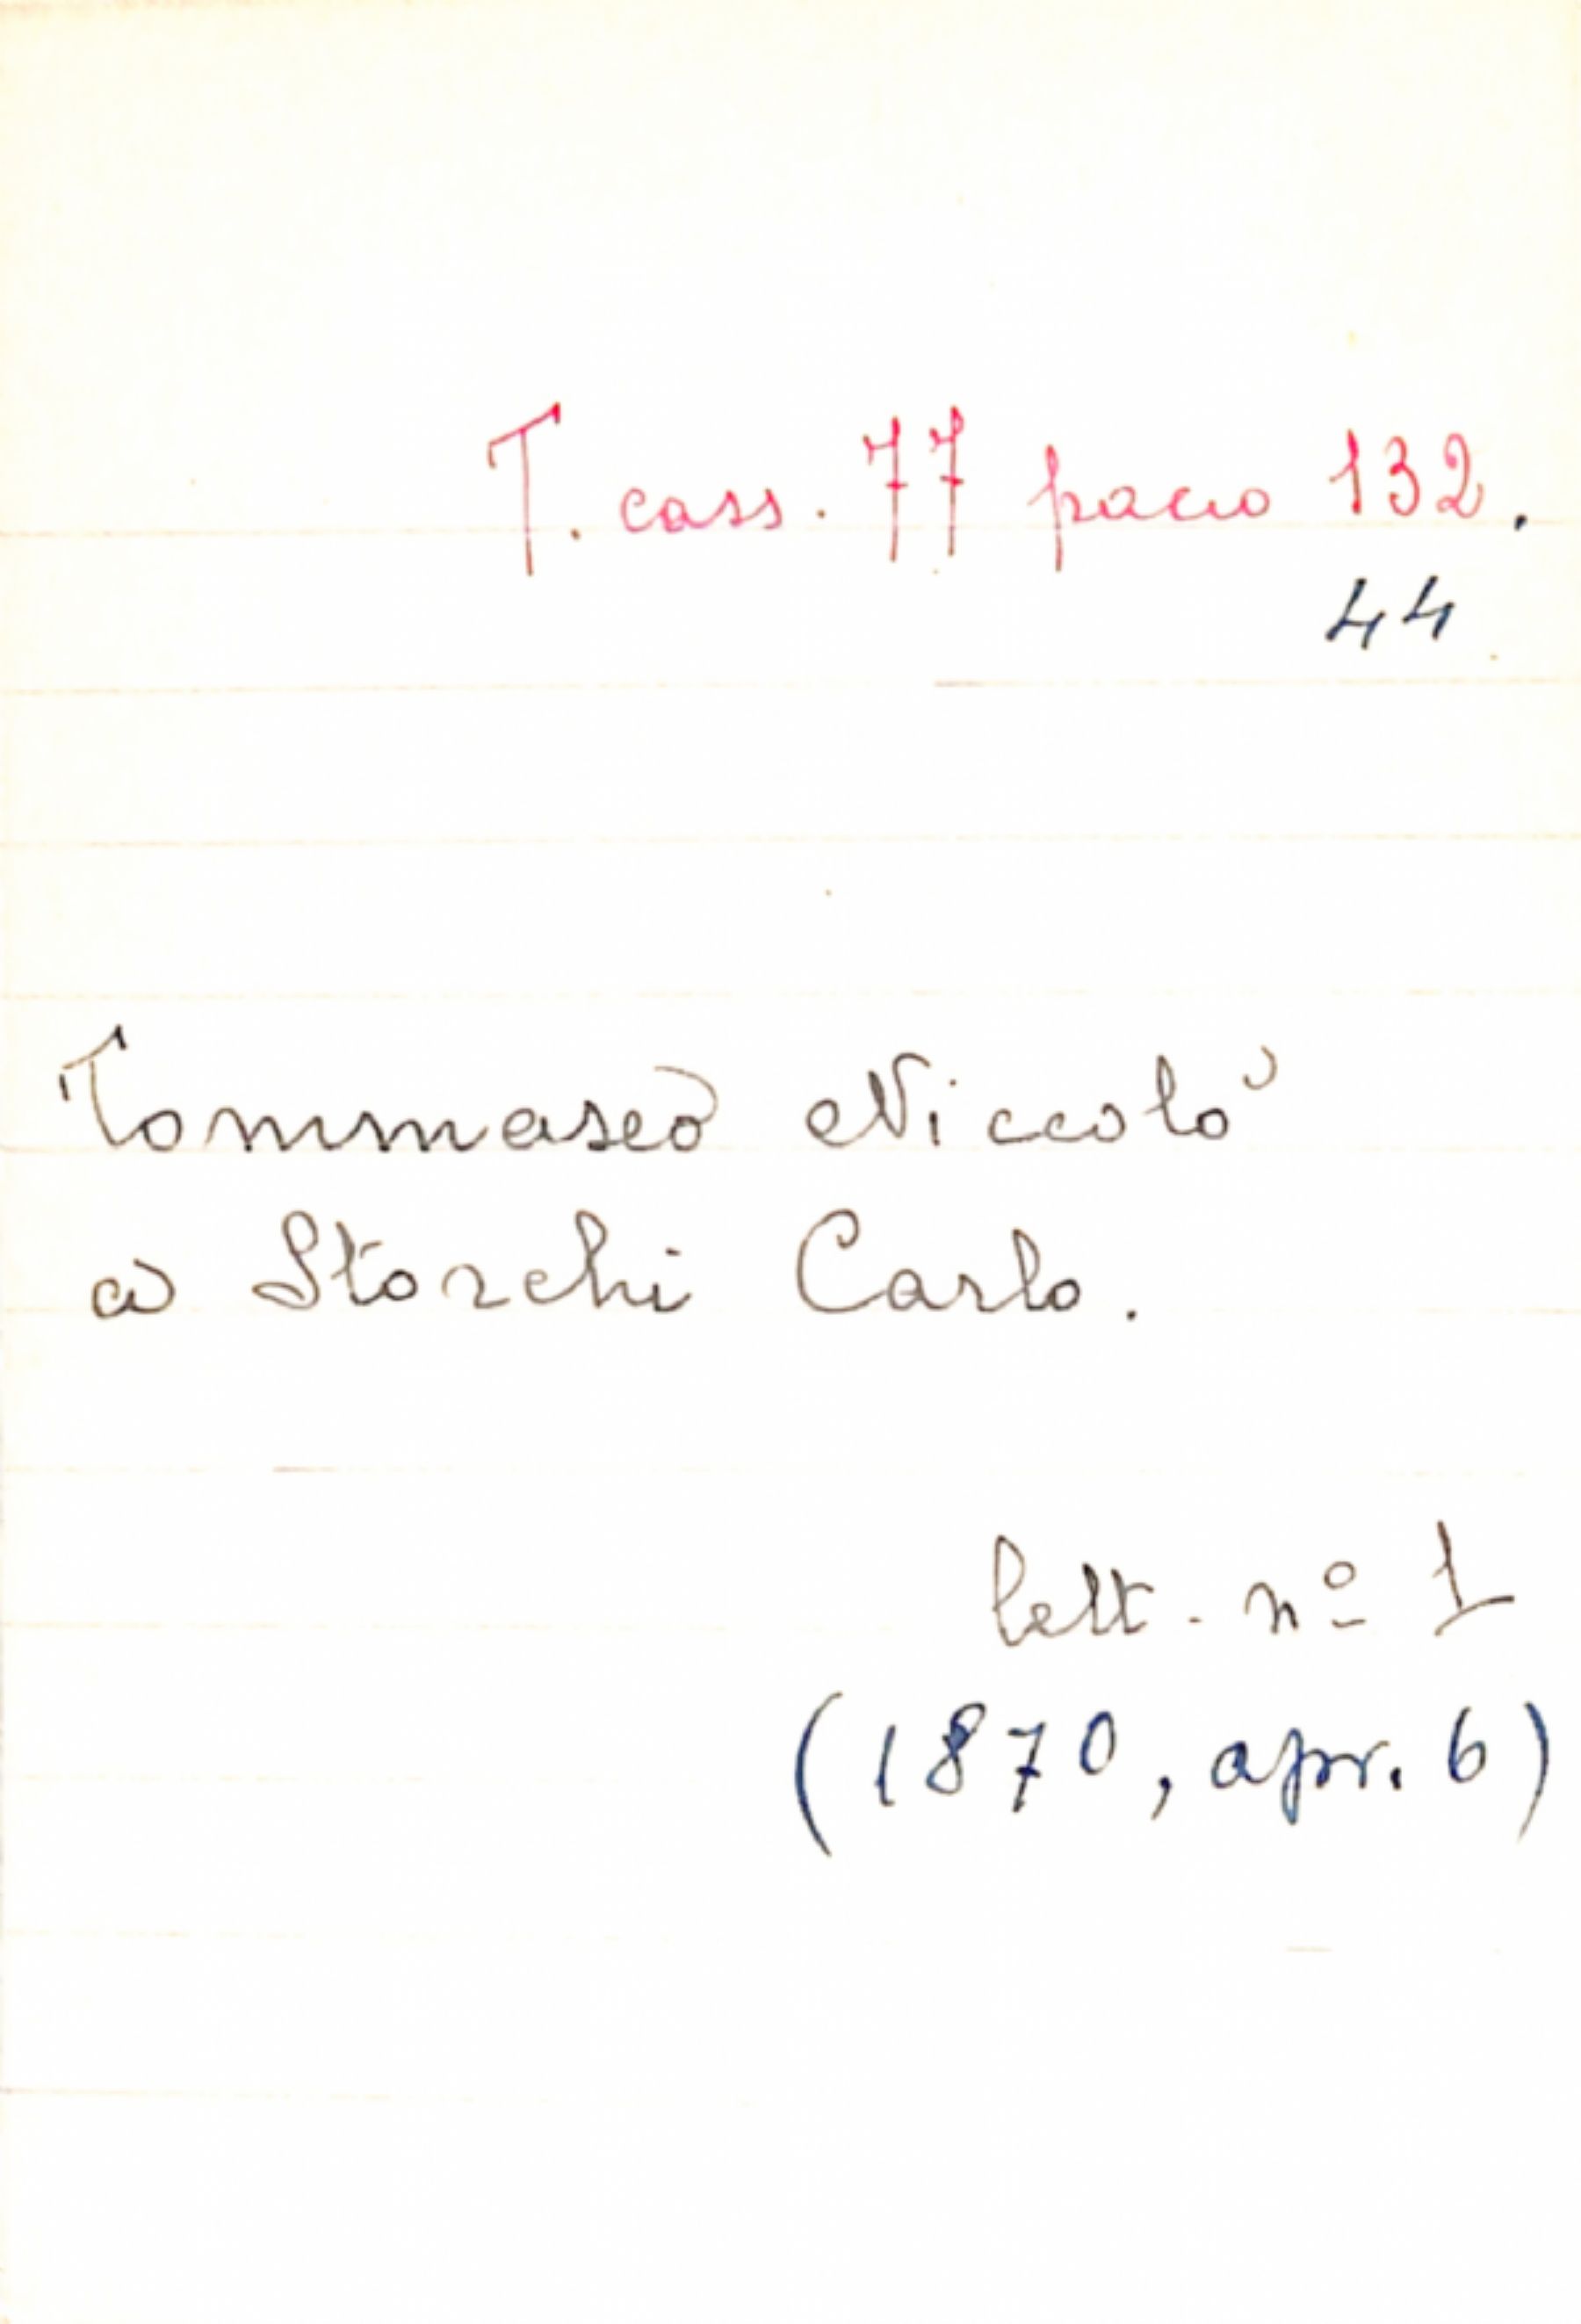 T. cass. 77 pacco 132.
44
Tommaseo Niccolò
a Storchi Carlo.
lett. nº 1
(1870, apr. 6)